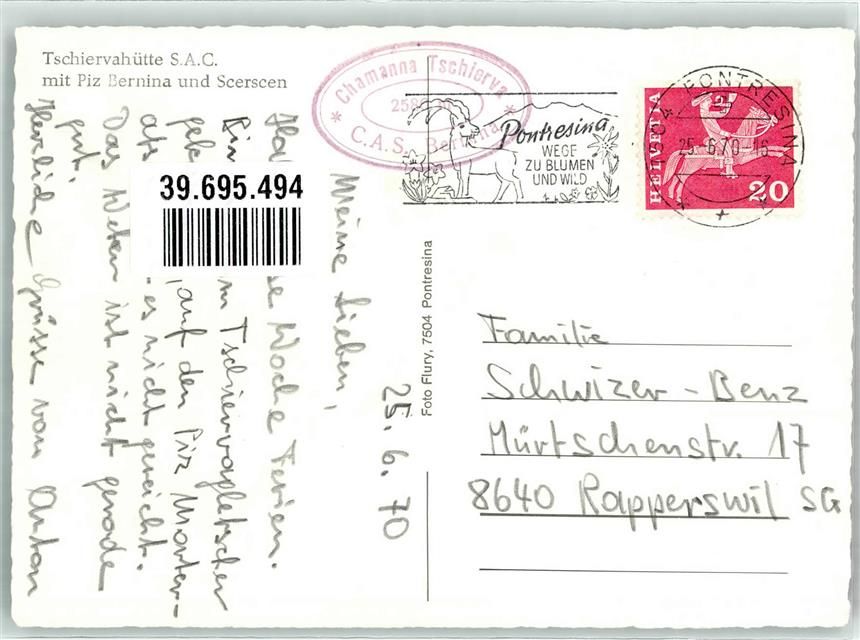 Tschiervahütte S.A.C.
mit Piz Bernina und Scerscen
Chamanna Tschierva
258
C.A.S. Bernina
Pontresina
WEGE
ZU BLUMEN
UND WILD
7504 PONTRESINA
25.6.70-16
HELVETIA
20
39.695.494
Foto Flury, 7504 Pontresina
25. 6. 70
Meine Lieben,
Woche Ferien.
Tschiervagletscher
auf den Piz Morter-
es nicht gereicht.
Das Wetter ist nicht gerade
gut.
Herzliche Grüsse von Anton
Familie
Schwizer - Benz
Mürtschenstr. 17
8640 Rapperswil SG